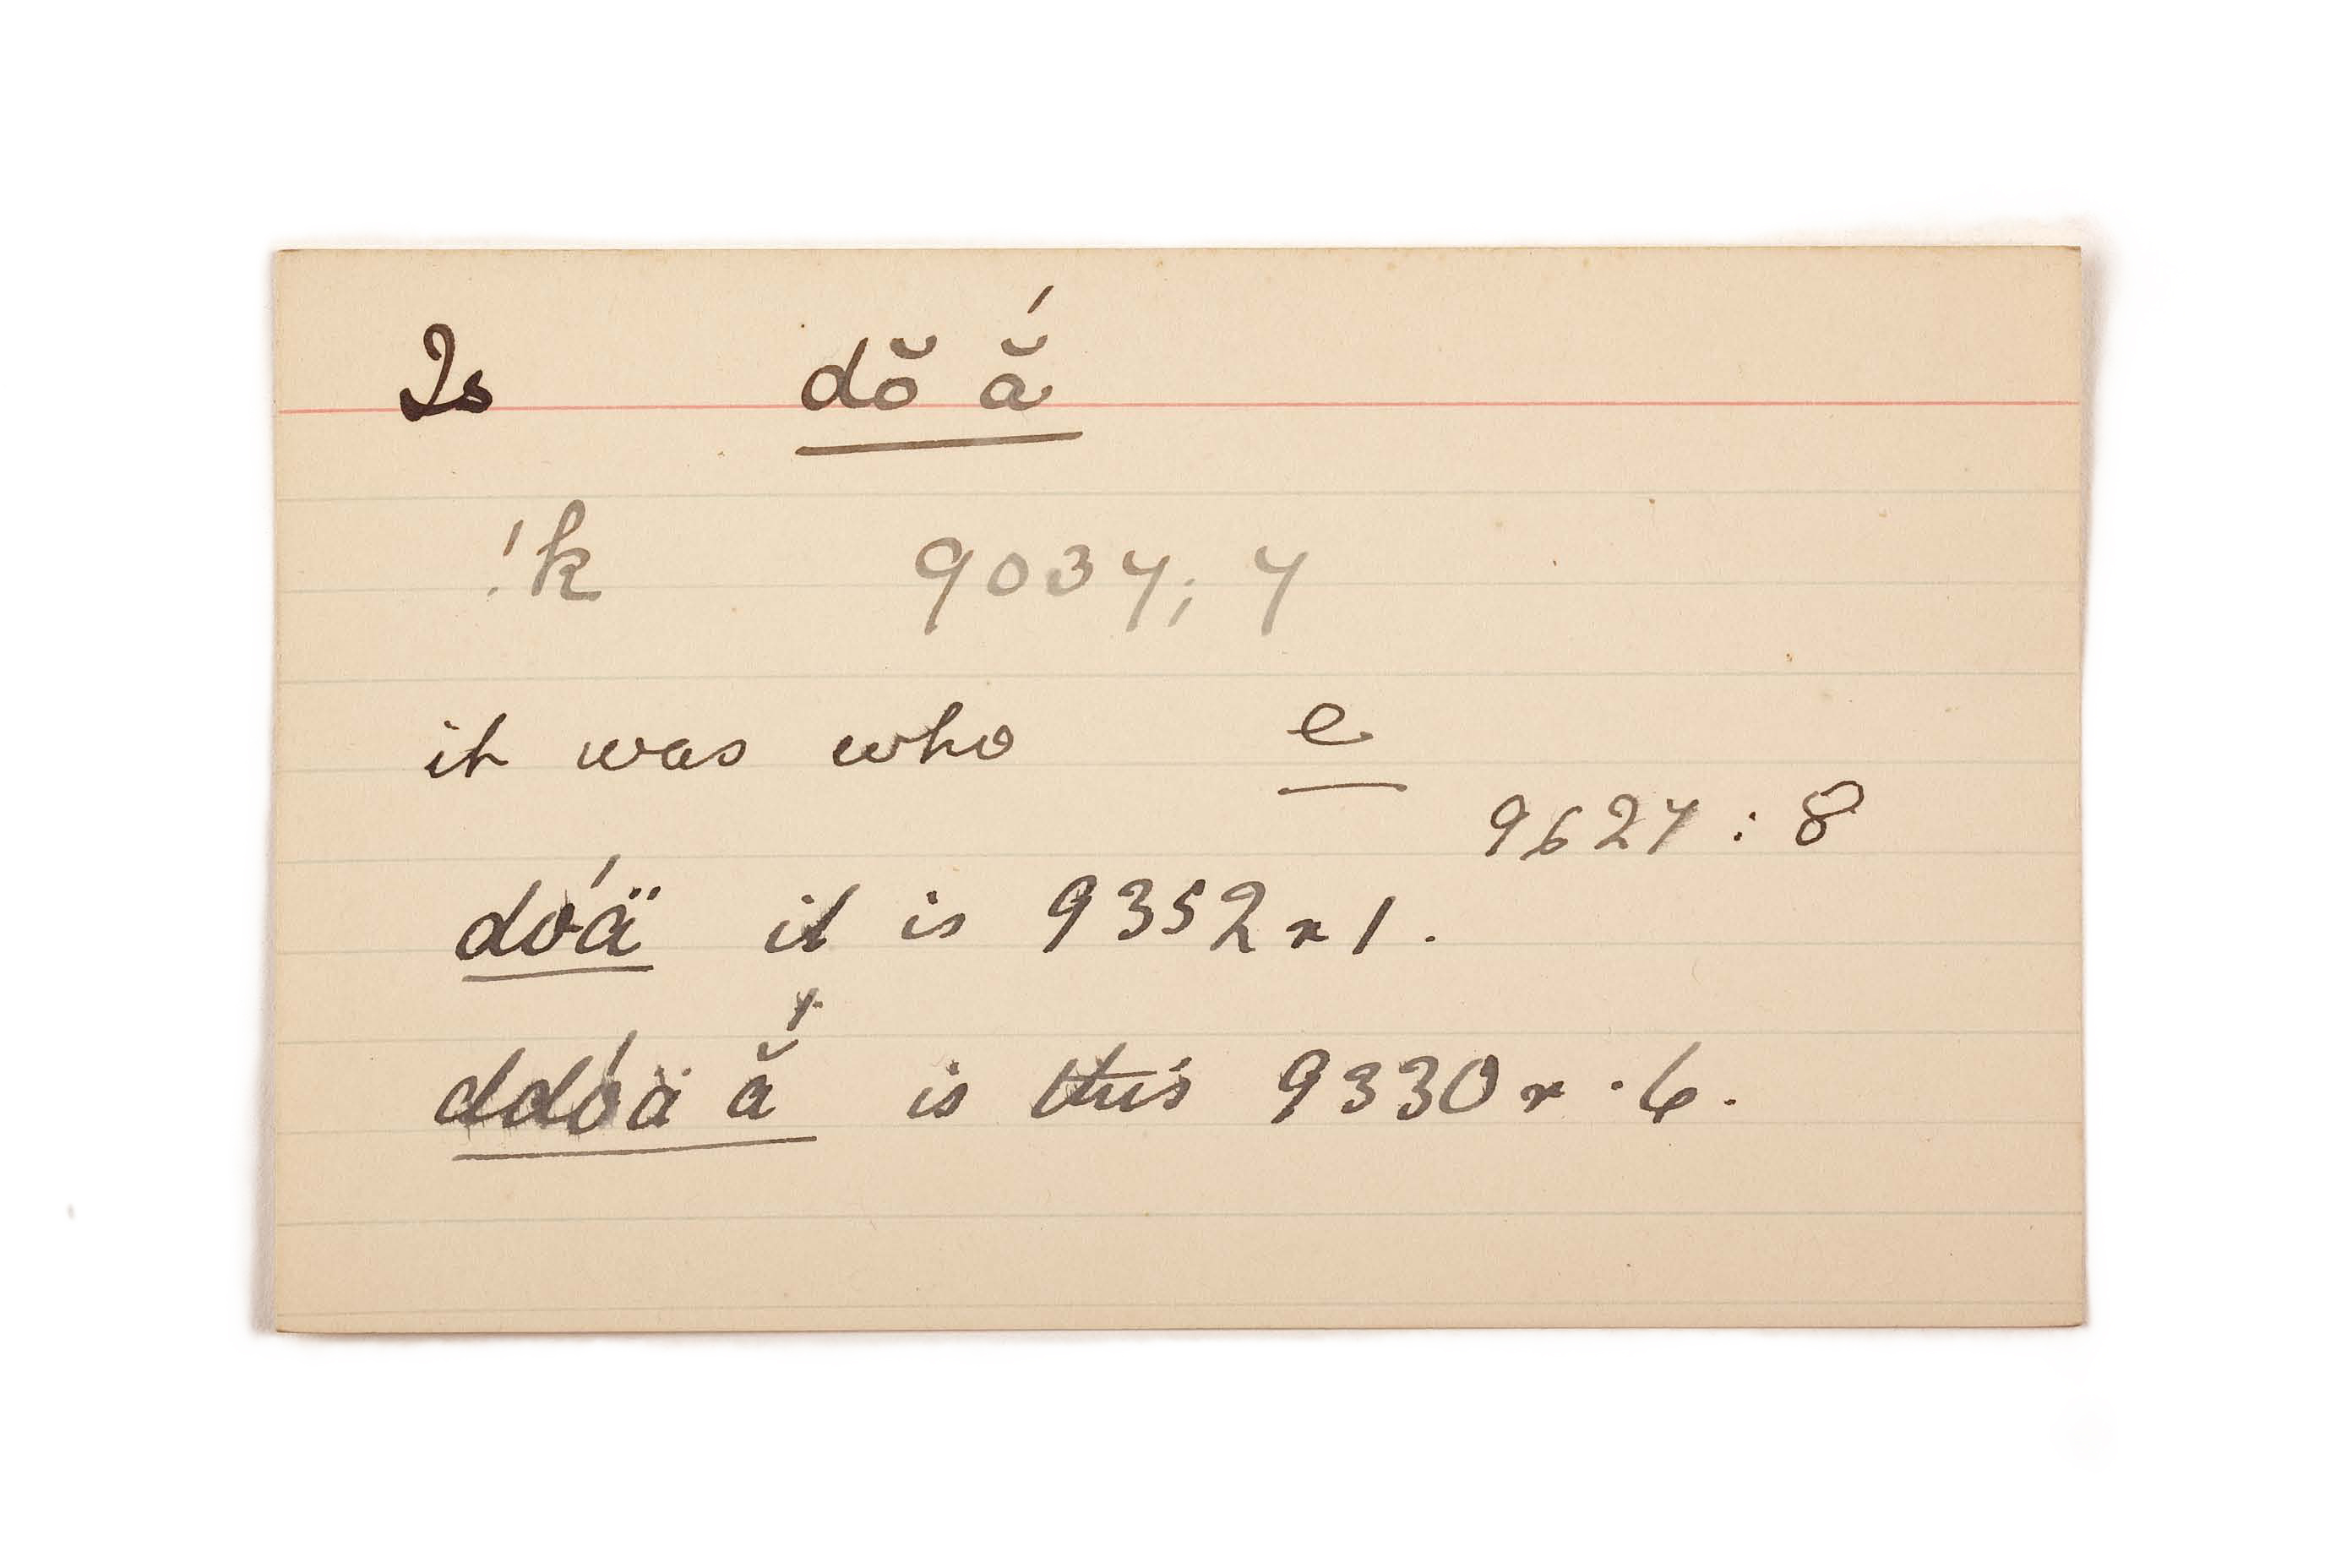 Is dŏ ằ́
!k 9037; 7
it was who e
9627 : 8
dóä it is 9352 x 1.
ddóä ắ is this 9330 x . 6.